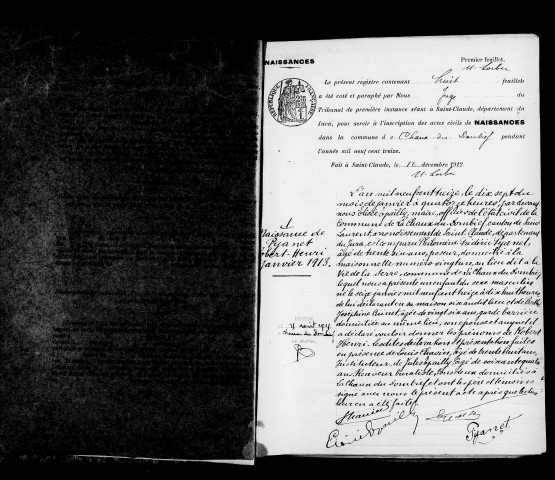 NAISSANCES
Premier feuillet.
Le présent registre contenant huit feuillets
a été coté et paraphé par Nous Juge du
Tribunal de première instance séant à Saint-Claude, département du
Jura, pour servir à l'inscription des actes civils de NAISSANCES
dans la commune d e Chaux-des- pendant
l'année mil neuf cent treize.
Fait à Saint-Claude, le 12 décembre 1912
RÉPUBLIQUE FRANÇAISE
1
Naissance de
Pyanet
Robert-Henri
Janvier 1913.
L'an mil neuf cent treize, le dix sept du
mois de janvier à quatorze heures, par devant
nous maire, officier de l'état civil de la
commune de La Chaux-du-Dombief, canton de Saint
Laurent, arrondissement de Saint-Claude, département
du Jura, est comparu Philomène Pyanet,
âgé de trente six ans, poseur, domicilié à la
maisonnette numéro vingt un, au lieu dit à la
Vie de la Serre, commune de La Chaux-du-Dombief,
lequel nous a présenté un enfant du sexe masculin
né le seize janvier mil neuf cent treize à dix huit heures
de lui déclarant en sa maison sise audit lieu et de
Joséphine âgée de vingt six ans garde barrière
domiciliée au même lieu, son épouse et auquel il
a déclaré vouloir donner les prénoms de Robert
Henri. Lesdites déclaration et présentation faites
en présence de Louis Chavin, âgé de trente huit ans,
Instituteur, de Jules âgé de soixante quatre
ans, tous deux domiciliés à
La Chaux-du-Dombief et ont les père et témoins
signé avec nous le présent acte après que lecture
leur en a été faite.
Pyanet